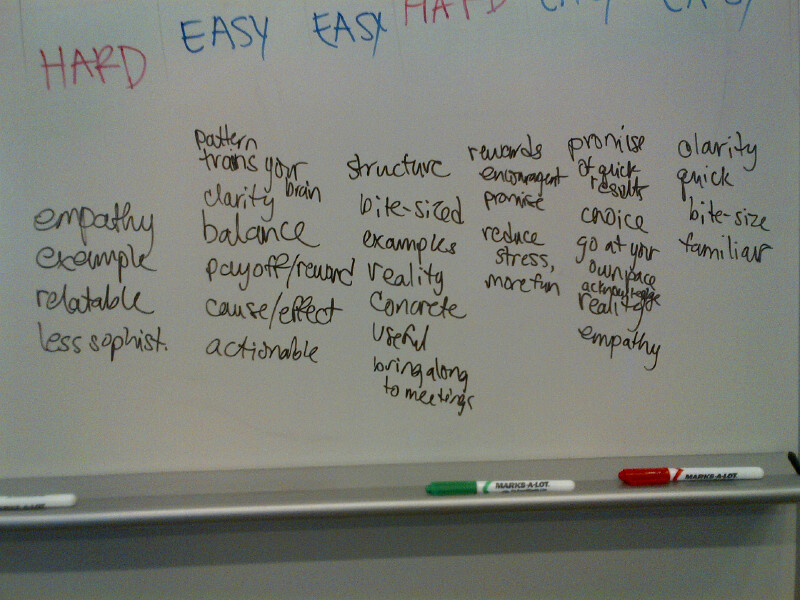 HARD
EASY
EASY
HARD
EASY
EASY
empathy
example
relatable
less sophist.
pattern
trains your
brain
clarity
balance
payoff/reward
cause/effect
actionable
structure
bite-sized
examples
reality
concrete
useful
bring along
to meetings
rewards
encouragent
promise
reduce
stress,
more fun
promise
of quick
results
choice
go at your
own pace
acknowledge
reality
empathy
clarity
quick
bite-size
familiar
MARKS-A-LOT.
MARKS-A-LOT.